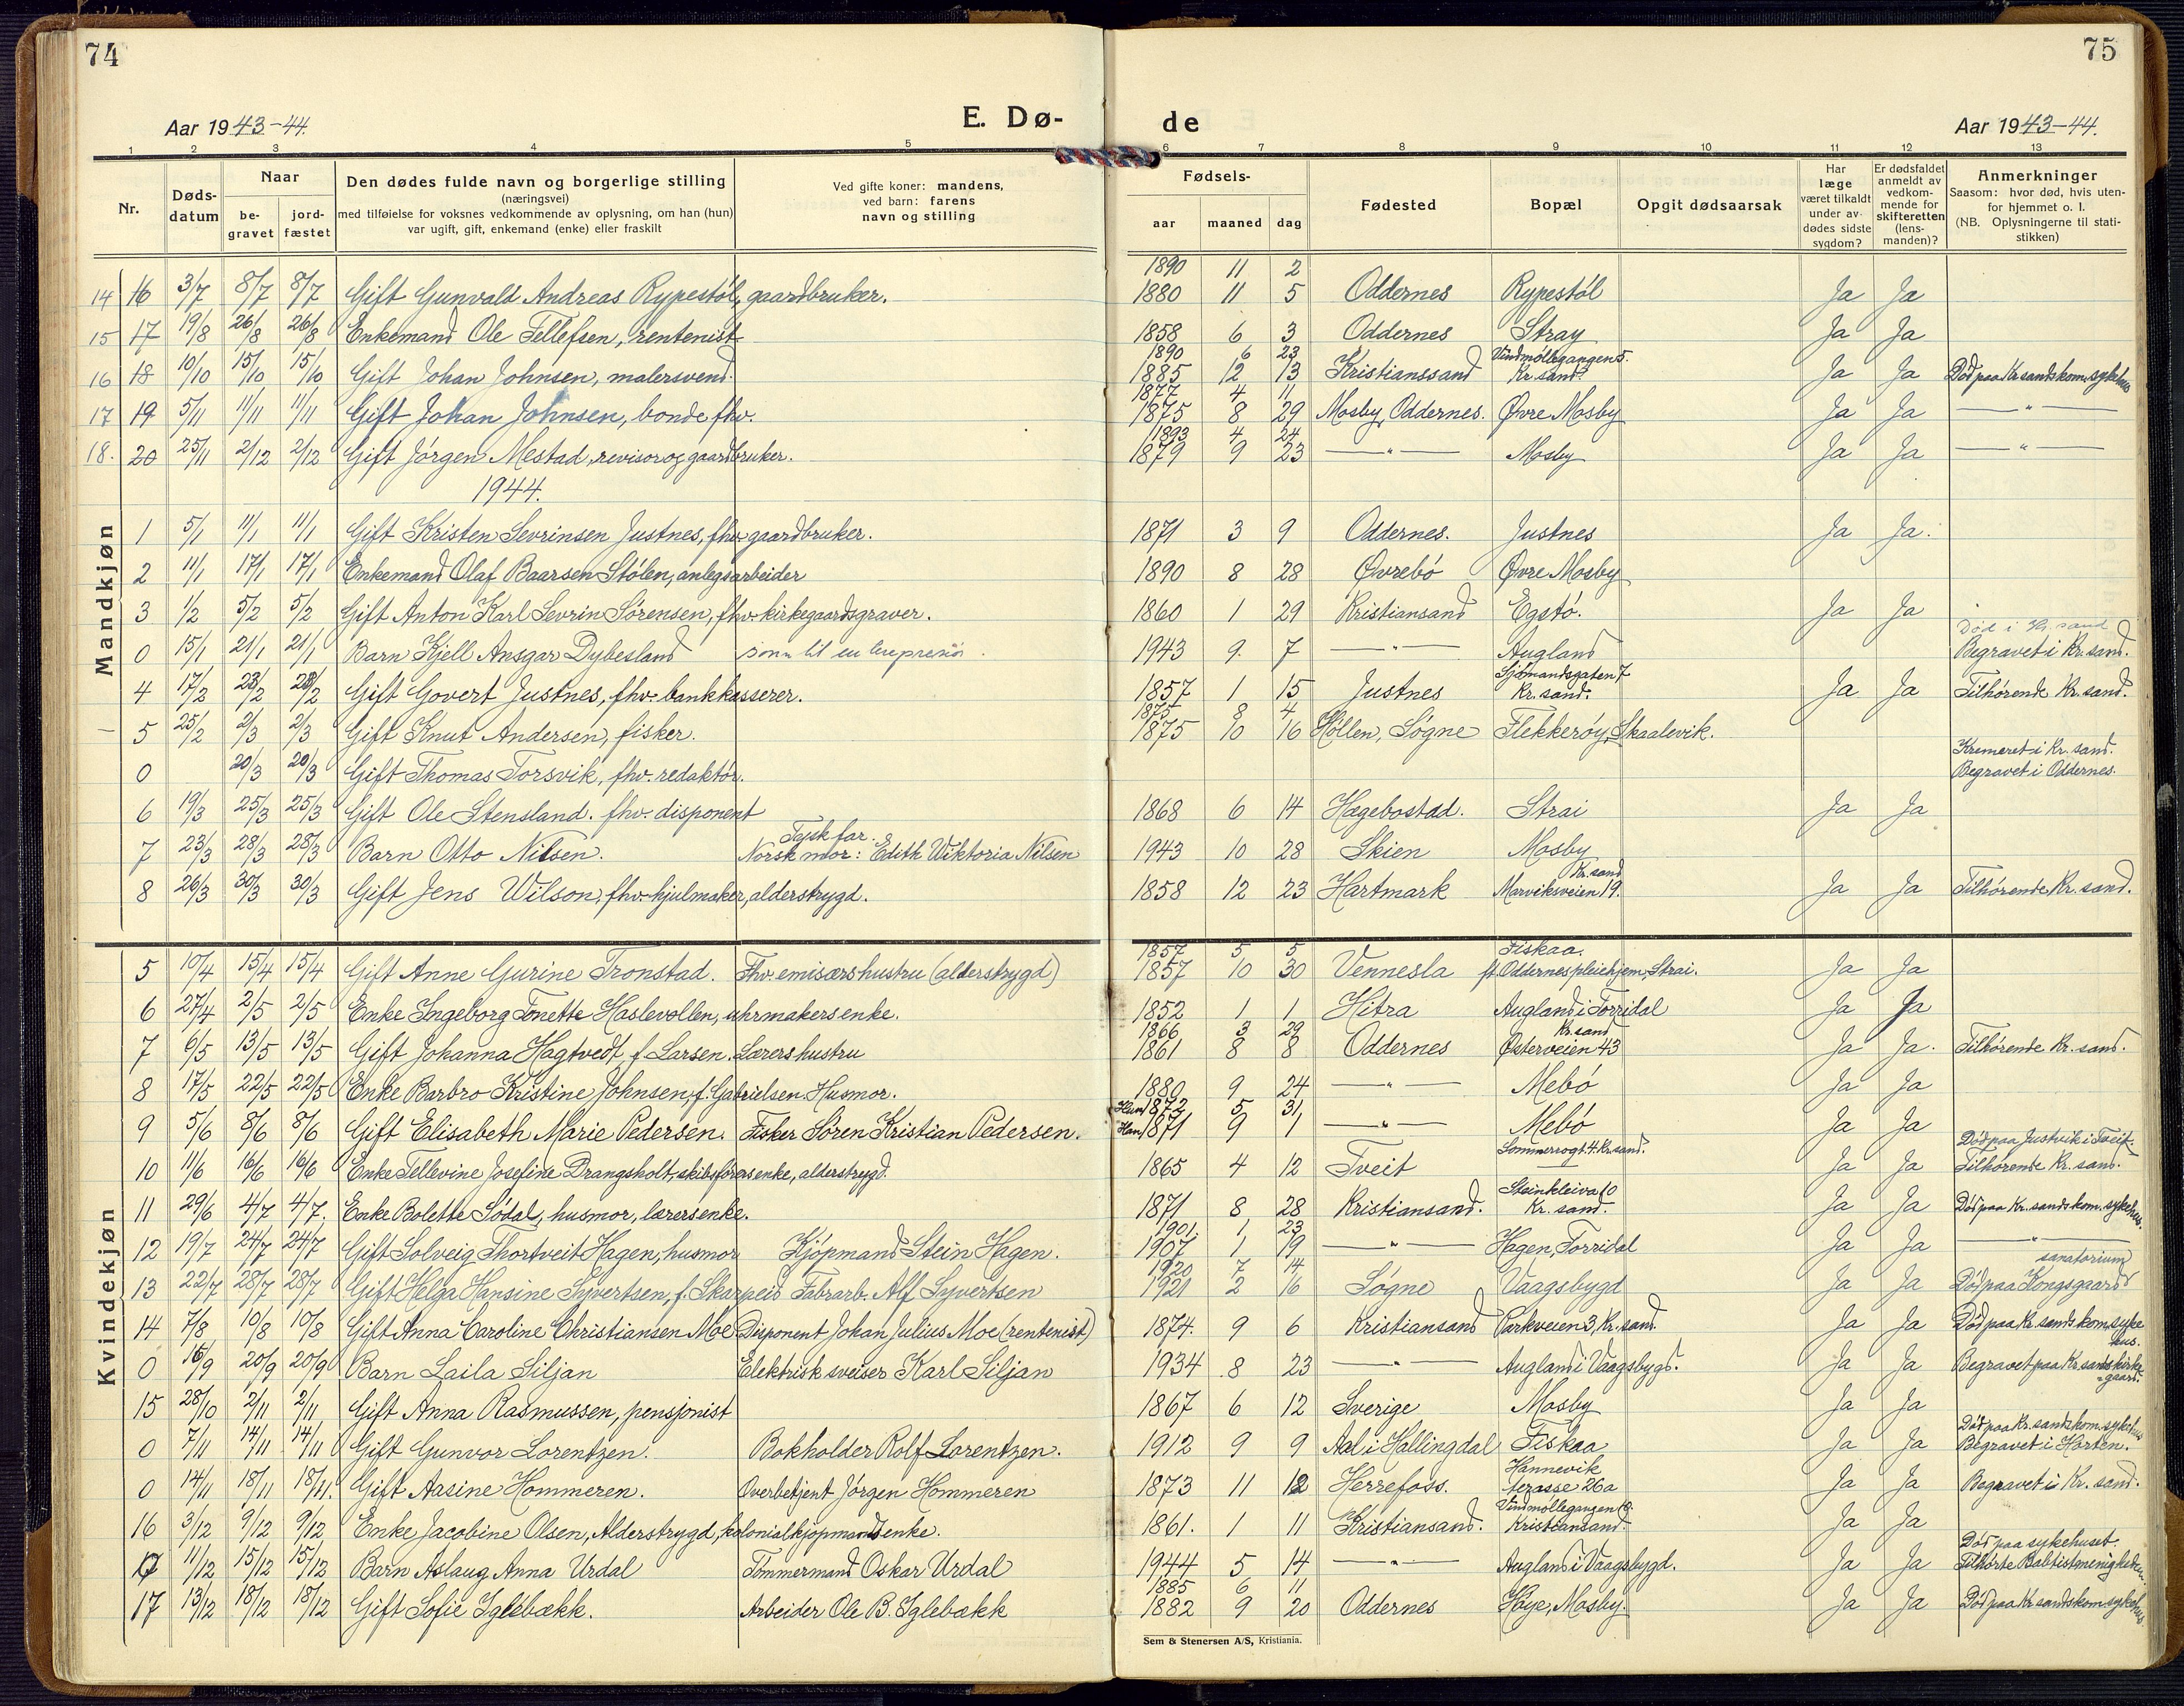 74
75
Aar 1943-44.
E. Dø-
de
Aar 1943-44.
1 2 3 4 5 6 7 8 9 10 11 12 13
Nr.
Døds-datum
Naar
be-gravet
jord-fæstet
Den dødes fulde navn og borgerlige stilling
(næringsvei)
med tilføielse for voksnes vedkommende av oplysning, om han (hun)
var ugift, gift, enkemand (enke) eller fraskilt
Ved gifte koner: mandens,
ved barn: farens
navn og stilling
Fødsels-
aar maaned dag
Fødested
Bopæl
Opgit dødsaarsak
Har læge været tilkaldt under av-dødes sidste sygdom?
Er dødsfaldet anmeldt av vedkom-mende for skifteretten (lens-manden)?
Anmerkninger
Saasom: hvor død, hvis uten-for hjemmet o. l.
(NB. Oplysningerne til stati-stikken)
Mandkjøn
1890 11 2
14 16 3/7 8/7 8/7 Gift Gunvald Andreas Rypestøl, gaardbruker. 1880 11 5 Oddernes Rypestøl Ja Ja
15 17 19/8 26/8 26/8 Enkemand Ole Tellefsen, rentenist 1858 6 3 Oddernes Stray Ja Ja
1890 6 23 Vindmøllegangen 5.
16 18 10/10 15/10 15/10 Gift Johan Johnsen, malersvend. 1885 12 13 Kristianssand Kr.sand. Ja Ja Død paa Kr.sands kom. sykehus
1877 4 11
17 19 5/11 11/11 11/11 Gift Johan Johnsen, bonde fhv. 1875 8 29 Mosby, Oddernes. Øvre Mosby Ja Ja — " —
1893 4 24
18. 20 25/11 2/12 2/12 Gift Jørgen Mestad, revisor og gaardbruker. 1879 9 23 — " — Mosby Ja Ja — " —
1944.
1 5/1 11/1 11/1 Gift Kristen Sevrinsen Justnes, fhv. gaardbruker. 1871 3 9 Oddernes. Justnes Ja Ja.
2 11/1 17/1 17/1 Enkemand Olaf Baarsen Stølen, anlegsarbeider 1890 8 28 Øvrebø Øvre Mosby
3 1/2 5/2 5/2 Gift Anton Karl Sevrin Sørensen, fhv. kirkegaardsgraver. 1860 1 29 Kristiansand Egstø. Ja Ja
Død i Kr.sand
0 15/1 21/1 21/1 Barn Kjell Ansgar Dybesland sønn til en 1943 9. 7 — " — Augland Begravet i Kr.sand.
Sjømandsgaten 7
4 17/2 23/2 23/2 Gift Govert Justnes, fhv. bankkasserer. 1857 1 15 Justnes Kr.sand. Ja Ja Tilhørende Kr.sand.
1875 8 4
5 25/2 2/3 2/3 Gift Knut Andersen, fisker. 1875 10 16 Høllen, Søgne Flekkerøy, Skaalevik.
Kremeret i Kr.sand.
0 20/3 20/3 Gift Thomas Torsvik, fhv. redaktør. Begravet i Oddernes.
6 19/3 25/3 25/3 Gift Ole Stensland. fhv. disponent 1868 6 14 Hægebostad. Strai Ja Ja
Tysk far.
7 23/3 28/3 28/3 Barn Otto Nilsen. Norsk mor: Edith Wiktoria Nilsen 1943 10 28 Skien Mosby
Kr.sand
8 26/3 30/3 30/3 Gift Jens Wilson, fhv. hjulmaker, alderstrygd. 1858 12 23 Hartmark Marviksveien 19. Ja Ja Tilhørende Kr.sand.
Kvindekjøn
1857 5 5 Fiskaa.
5 10/4 15/4 15/4 Gift Anne Gurine Tronstad. Fhv. emisærs hustru (alderstrygd) 1857 10 30 Vennesla ft. Oddernes pleiehjem, Strai. Ja Ja
6 27/4 2/5 2/5 Enke Ingeborg Tonette Haslevollen, uhrmakersenke. 1852 1 1 Hitra Augland i Torridal Ja Ja
1866 3 29 Kr.sand
7 6/5 13/5 13/5 Gift Johanna Hagtvedt, f. Larsen. Lærers hustru 1861 8 8 Oddernes Østerveien 43 Ja Ja. Tilhørende Kr.sand.
8 17/5 22/5 22/5 Enke Barbro Kristine Johnsen, f. Gabrielsen. Husmor. 1880 9 24 — " — Mebø Ja Ja
Hun 1872 5 31
9 5/6 8/6 8/6 Gift Elisabeth Marie Pedersen. Fisker Søren Kristian Pedersen. Han 1871 9 1 — " — Mebø Ja Ja
Sommerrogt. 4. Kr.sand. Død paa Justvik i Tveit.
10 11/6 16/6 16/6 Enke Tellevine Josefine Drangsholt, skibsførersenke, alderstrygd. 1865 4 12 Tveit Ja Ja Tilhørende Kr.sand.
Steinkleiva 10
11 29/6 4/7 4/7. Enke Bolette Sødal, husmor, lærersenke. 1871 8 28 Kristiansand. Kr.sand. Ja Ja Død paa Kr.sands kom. sykehus.
1901 1 23
12 19/7 24/7 24/7 Gift Solveig Thortveit Hagen, husmor Kjøpmand Stein Hagen. 1907 1 19 — " — Hagen, Torridal Ja Ja — " —
1920 7 14 sanatorium
13 22/7 28/7 28/7 Gift Helga Hansine Syvertsen, f. Skarpeid Fabrarb. Alf Syvertsen 1921 2 16 Søgne Vaagsbygd Ja Ja Død paa Kongsgaard
14 7/8 10/8 10/8 Gift Anna Caroline Christiansen Moe Disponent Johan Julius Moe (rentenist) 1874. 9 6 Kristiansand Parkveien 3, Kr.sand. Ja Ja Død paa Kr.sands kom. syke hus.
0 15/9 20/9 20/9 Barn Laila Siljan Elektrisk sveiser Karl Siljan 1934 8 23 — " — Augland i Vaagsbygd. Ja Ja Begravet paa Kr.sands kirke-gaard.
15 28/10 2/11 2/11 Gift Anna Rasmussen, pensjonist 1867 6 12 Sverige Mosby Ja Ja
Død paa Kr.sands kom. sykehus
0 7/11 14/11 14/11 Gift Gunvor Lorentzen. Bokholder Rolf Lorentzen. 1912 9 9 Aal i Hallingdal Fiskaa Ja Ja Begravet i Horten.
Hannevik
0 14/11 18/11 18/11. Gift Aasine Hommeren. Overbetjent Jørgen Hommeren 1873 11 12 Herrefoss. terasse 26a Ja Ja Begravet i Kr.sand.
Vindmøllegangen
16 3/12 9/12 9/12 Enke Jacobine Olsen, Alderstrygd, kolonialkjøpmandsenke. 1861. 1 11 Kristiansand. Kristiansand. Ja Ja
Død paa sykehuset.
0 11/12 15/12 15/12 Barn Aslaug Anna Urdal Tømmermand Oskar Urdal 1944 5 14 — " — Augland i Vaagsbygd. Ja Ja Tilhørte Babtistmenigheden.
1885 6 11
17 13/12 18/12 18/12 Gift Sofie Iglebækk. Arbeider Ole B. Iglebækk 1882 9 20 Oddernes Høye, Mosby. Ja Ja Død paa Kr.sands kom. sykehus
Sem & Stenersen A/S, Kristiania.